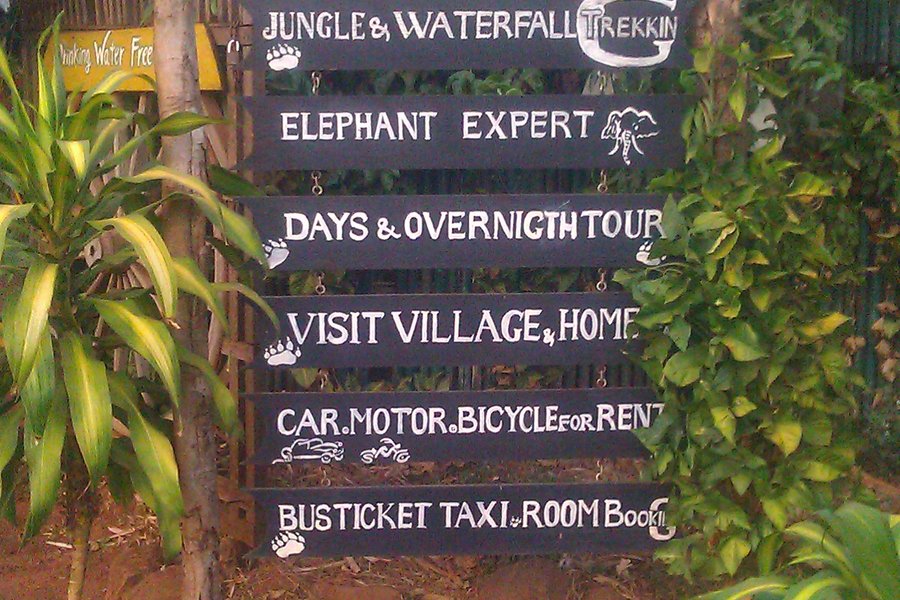 Drinking Water Free
JUNGLE & WATERFALL TREKKING
ELEPHANT EXPERT
DAYS & OVERNIGTH TOUR
VISIT VILLAGE & HOME
CAR. MOTOR. BICYCLE FOR RENT
BUSTICKET TAXI. ROOM BOOKING